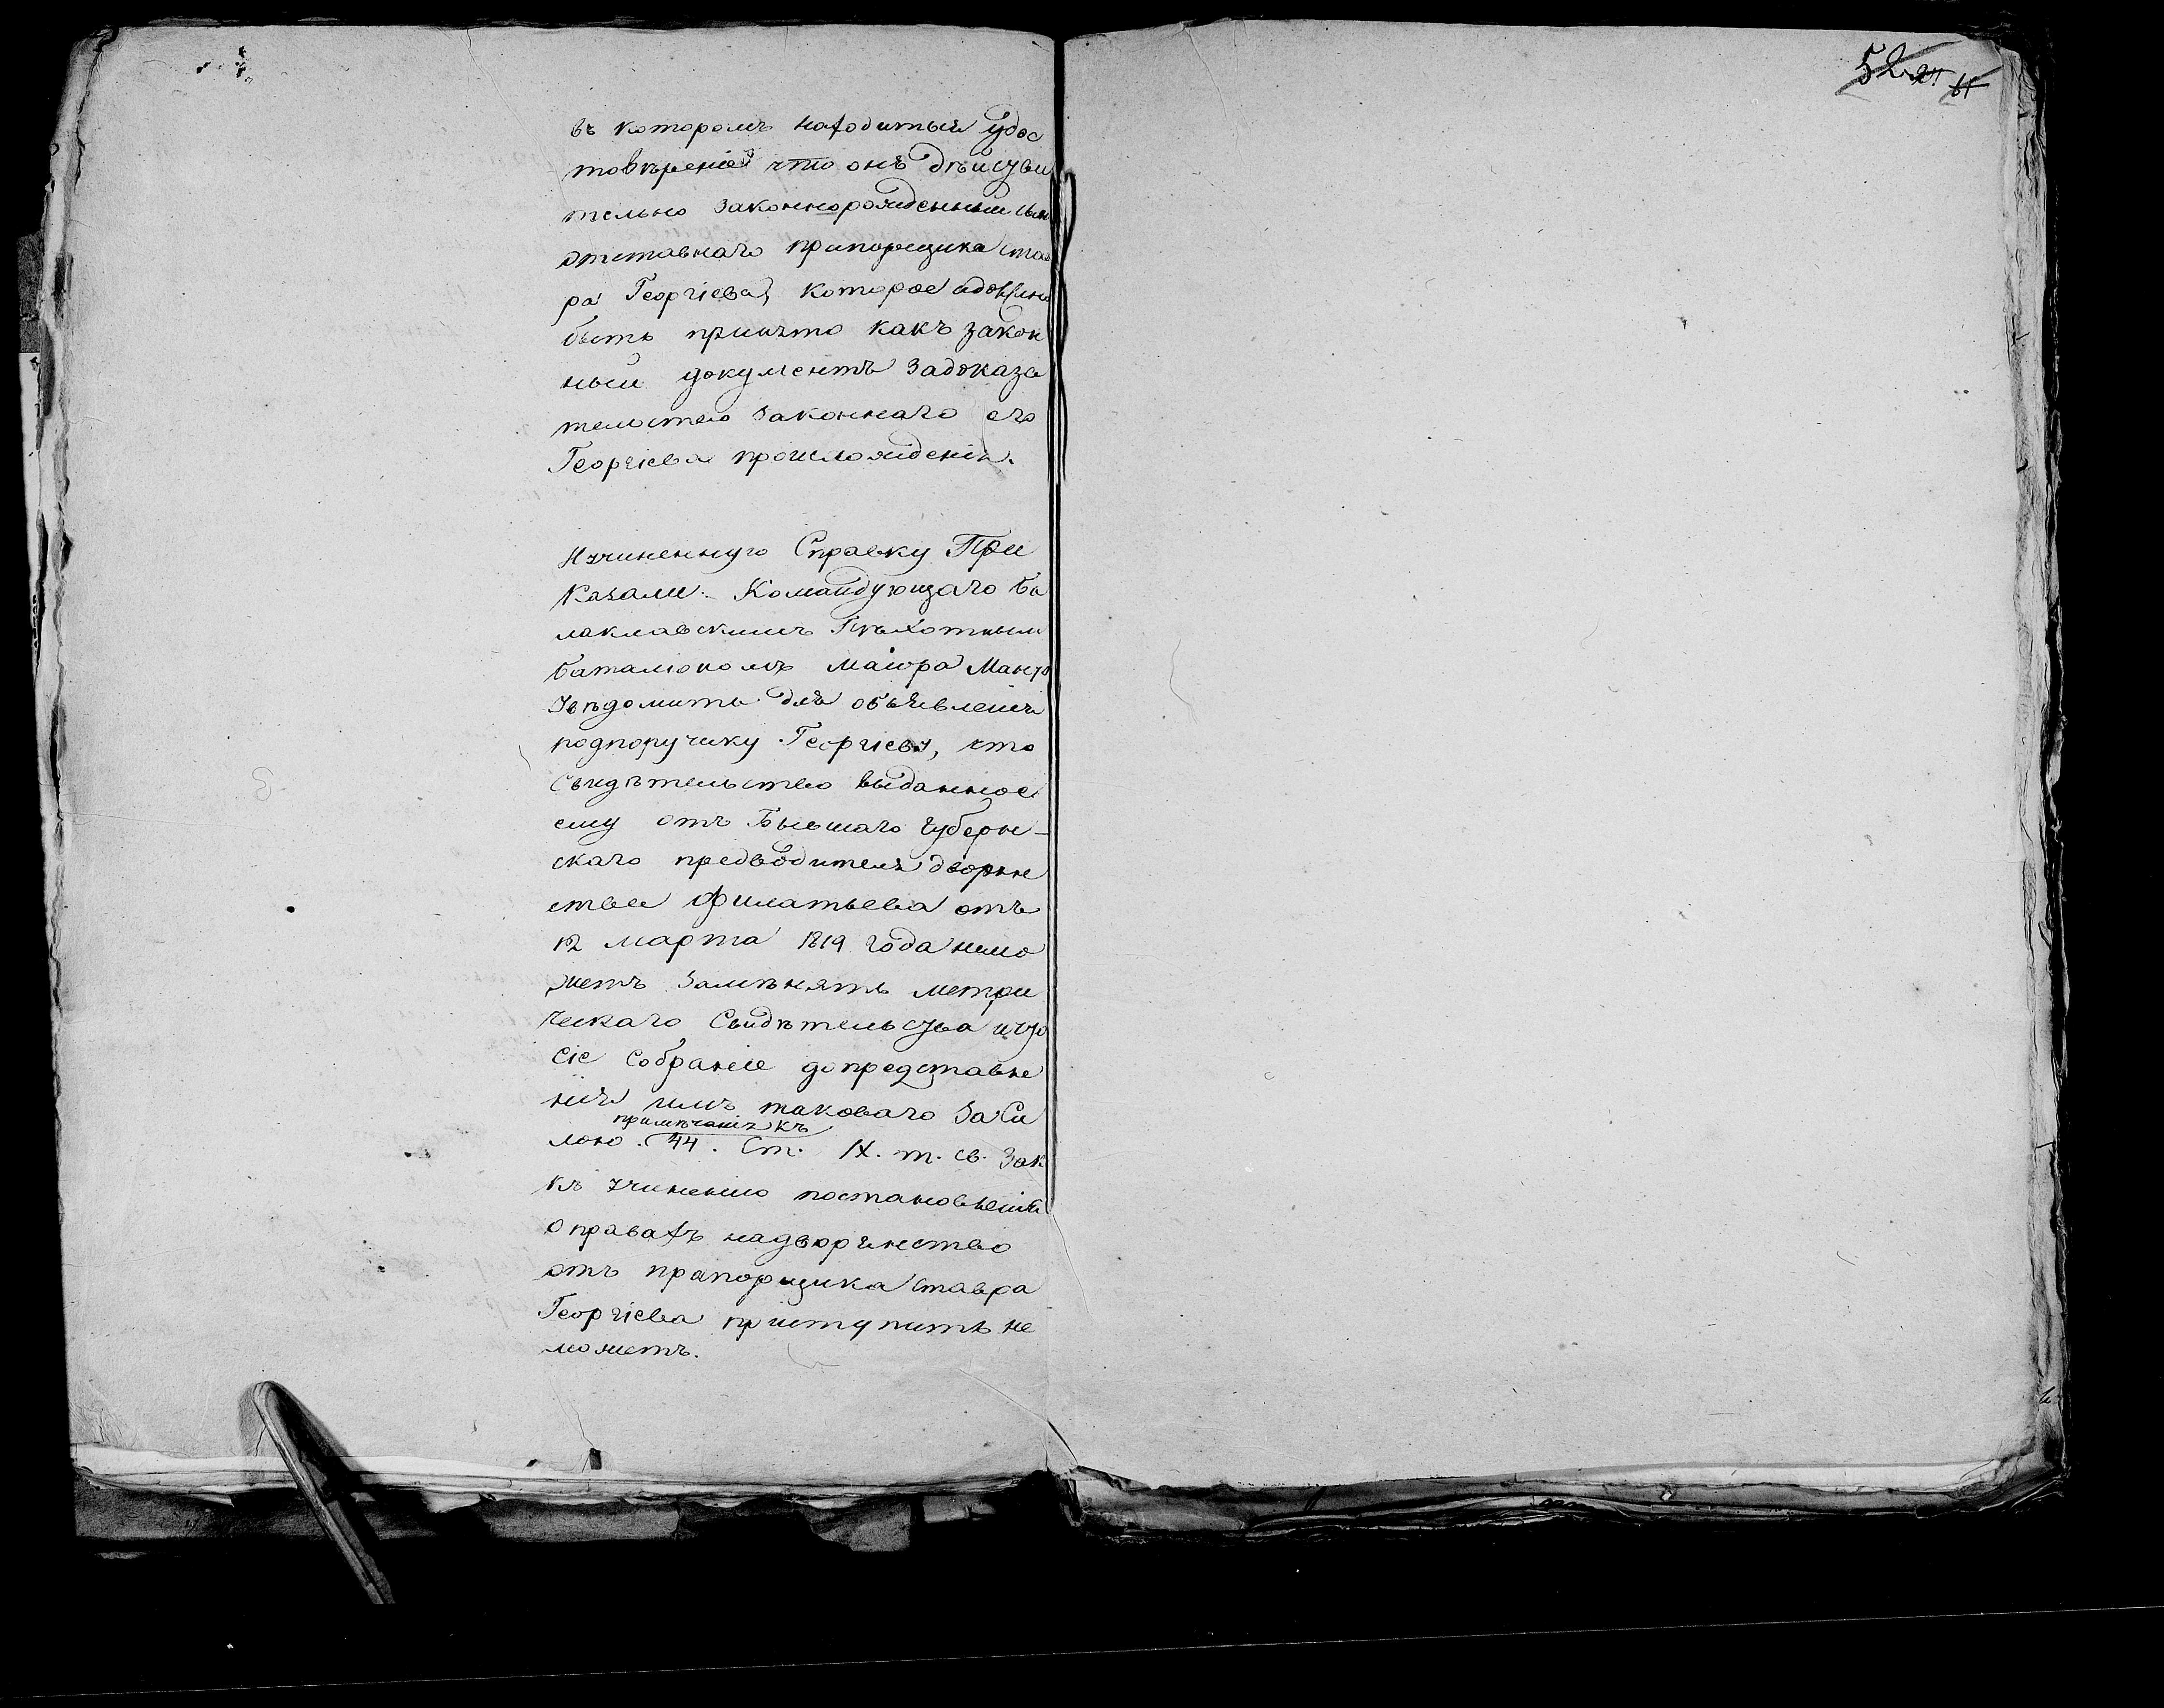 52
въ которомъ находитьси удос
товѣреніе что онъ дѣистви
тельно законнорожденный сын
отставнаго прапорщика став
ра Георгіева, которое и должно
быть принято какъ закон
ный документъ за доказа
тельство законнаго его
Георгіева происложденія.
И учиненную Справку При
казали: Командующаго Ба
лаклавскимъ Пѣхотнымъ
баталіономъ Маіора Манто
увѣдомить для объявленія
подпоручику Георгіеву, что
свидѣтельство выданное
ему отъ Бывшаго Губерн-
скаго предводителя дворян
ства Филатьева отъ
12 марта 1819 года немо
жетъ замѣнять метри
ческаго Свидѣтельства и что
сіе Собраніе до представле
нія имъ таковаго За Си
примѣчанія къ
лою. 44. Ст. IX. т. св. Зак
къ учиненію постановленія
о правахъ на дворянство
отъ прапорщика Ставра
Георгіева приступить не
можетъ.